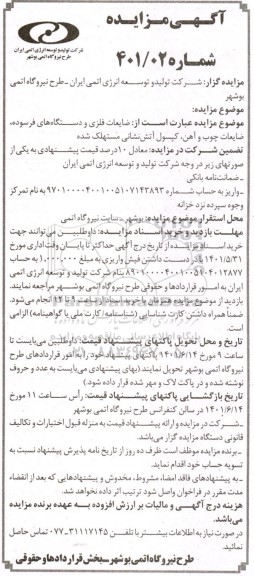 آگهی مزایده
شرکت تولید و توسعه انرژی اتمی ایران
طرح نیروگاه اتمی بوشهر
شماره ۴۰۱/۰۲
مزایده گزار: شرکت تولید و توسعه انرژی اتمی ایران ـ طرح نیروگاه اتمی
بوشهر
موضوع مزایده:
موضوع مزایده عبارت است از: ضایعات فلزی و دستگاه‌های فرسوده،
ضایعات چوب و آهن، کپسول آتش‌نشانی مستهلک شده
تضمین شرکت در مزایده: معادل ۱۰درصد قیمت پیشنهادی به یکی از
صورتهای زیر در وجه شرکت تولید و توسعه انرژی اتمی ایران
ـ ضمانت‌نامه بانکی
ـ واریز به حساب شماره به نام تمرکز
وجوه سپرده نزد خزانه
محل استقرار موضوع مزایده: بوشهر ـ سایت نیروگاه اتمی
مهلت بازدید و خرید اسناد مزایده: داوطلبین می‌توانند جهت
خرید اسناد مزایده از تاریخ درج آگهی حداکثر تا پایان وقت اداری مورخ
۱۴۰۱/۵/۳۱ با در دست داشتن فیش واریزی به مبلغ ۱،۰۰۰،۰۰۰ به حساب
بنام شرکت تولید و توسعه انرژی اتمی
ایران به امور قراردادها و حقوقی طرح نیروگاه اتمی بوشهر مراجعه نمایند.
بازدید از موضوع مزایده همزمان با خرید اسناد از ساعت ۹ تا ۱۲ انجام می‌شود.
ضمناً همراه داشتن کارت شناسایی (شناسنامه/ کارت ملی یا گواهینامه) الزامی
است.
تاریخ و محل تحویل پاکتهای پیشنهاد قیمت: داوطلبین می‌بایست تا
ساعت ۹ مورخ ۱۴۰۱/۶/۱۴ پاکتهای پیشنهاد خود را به امور قراردادهای طرح
نیروگاه اتمی بوشهر تحویل نمایند.(بهای پیشنهادی می‌بایست به عدد و حروف
نوشته شده و در پاکت لاک و مهر شده قرار داده شود.)
تاریخ بازگشایی پاکتهای پیشنهاد قیمت: رأس ساعت ۱۱ مورخ
۱۴۰۱/۶/۱۴ در سالن کنفرانس طرح نیروگاه اتمی بوشهر
ـ شرکت در مزایده و ارائه پیشنهاد قیمت به منزله قبول اختیارات و تکالیف
قانونی دستگاه مزایده گزار می‌باشد.
ـ برنده مزایده موظف است ظرف ده روز از تاریخ نامه پذیرش پیشنهاد نسبت به
تسویه حساب خود اقدام نماید.
ـ به پیشنهادهای فاقد امضاء، مشروط، مخدوش و پیشنهادهایی که بعد از انقضاء
مدت مقرر در فراخوان واصل شود ترتیب اثر داده نخواهد شد.
هزینه درج آگهی و مالیات بر ارزش افزوده به عهده برنده مزایده
می‌باشد.
در صورت نیاز به اطلاعات بیشتر با تلفن ۳۱۱۱۷۱۴۵-۰۷۷ تماس حاصل
نمائید.
طرح نیروگاه اتمی بوشهر ـ بخش قراردادها و حقوقی